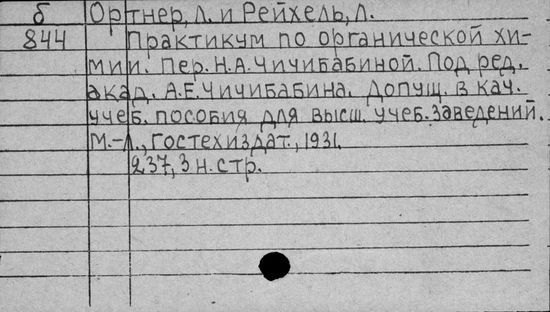 б Ортнер, Л. и Рейхель, Л.
844 Практикум по органической хи-
мии. Пер. Н.А. Чичибабиной. Под ред.
акад. А.Е. Чичибабина. Допущ. в кач.
учеб. пособия для высш. учеб. заведений.
М.-Л., Гостехиздат., 1931.
237, 3 н. стр.